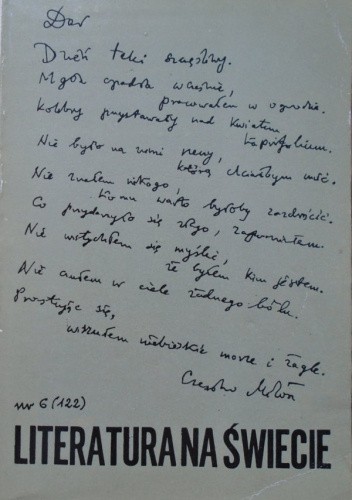 Dar
Dzień taki szczęśliwy.
Mgła opadła wcześnie,
pracowałem w ogrodzie.
Kolibry przystawały nad kwiatem
kaprifolium.
Nie było na ziemi rzeczy,
którą chciałbym mieć.
Nie znałem nikogo,
komu warto byłoby zazdrościć.
Co przydarzyło się złego, zapomniałem.
Nie wstydziłem się myśleć,
że byłem kim jestem.
Nie czułem w ciele żadnego bólu.
Prostując się,
widziałem niebieskie morze i żagle.
Czesław Miłosz
nr 6 (122)
LITERATURA NA ŚWIECIE